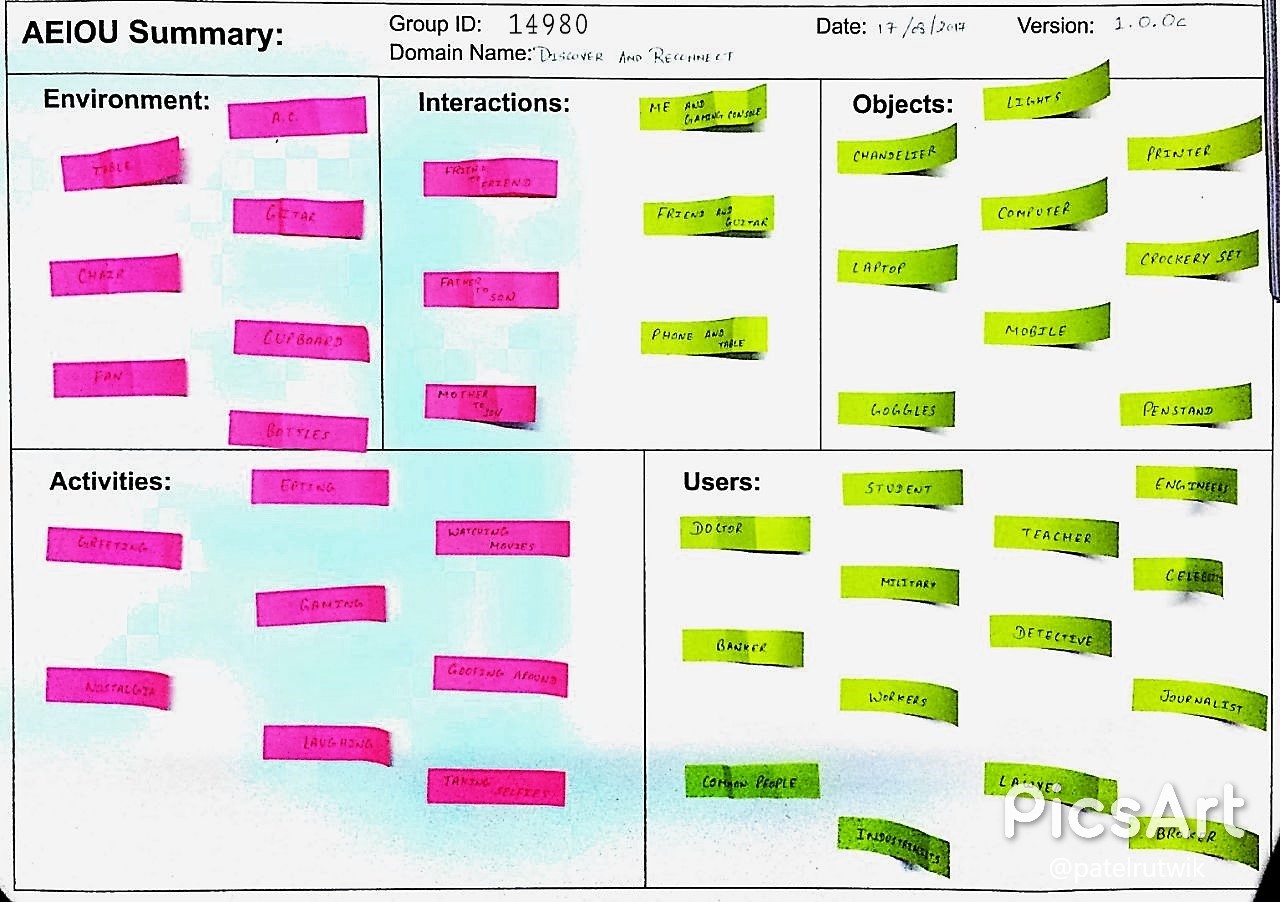 AEIOU Summary:
Group ID: 14980
Date: 17/08/2017
Version: 1.0.0c
Domain Name: DISCOVER AND RECONNECT
Environment:
A.C.
TABLE
GUITAR
CHAIR
CUPBOARD
FAN
BOTTLES
Interactions:
ME AND
GAMING CONSOLE
FRIEND
TO FRIEND
FRIEND AND
GUITAR
FATHER
TO SON
PHONE AND
TABLE
MOTHER
TO SON
Objects:
LIGHTS
CHANDELIER
PRINTER
COMPUTER
LAPTOP
CROCKERY SET
MOBILE
GOGGLES
PENSTAND
Activities:
EATING
GREETING
WATCHING
MOVIES
GAMING
NOSTALGIA
GOOFING AROUND
LAUGHING
TAKING
SELFIES
Users:
STUDENT
ENGINEERS
DOCTOR
TEACHER
MILITARY
CELEBRITY
BANKER
DETECTIVE
WORKERS
JOURNALIST
COMMON PEOPLE
LAWYER
INDUSTRIALISTS
BROKER
PicsArt
@patelrutwik